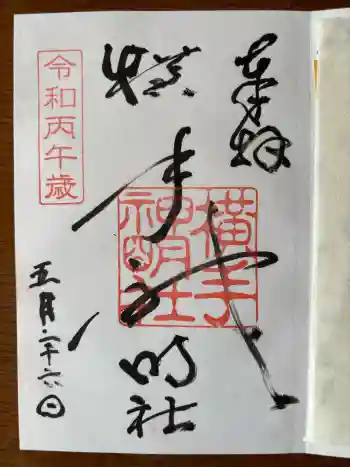 奉拝
横手神明社
横手
神明社
令和丙午歳
五月二十六日